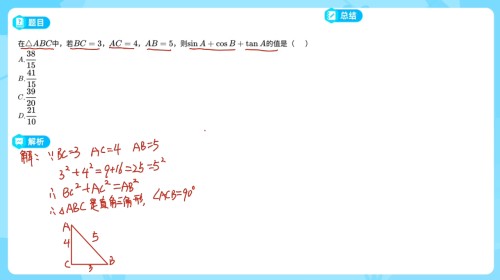 题目
总结
在△ABC中，若BC = 3，AC = 4，AB = 5，则sin A + cos B + tan A的值是（ ）
A. 38/15
B. 41/15
C. 39/20
D. 21/10
解析
解：∵BC=3 AC=4 AB=5
3²+4²=9+16=25=5²
∴BC²+AC²=AB²
∴△ABC是直角三角形，∠ACB=90°
A
4 5
C 3 B